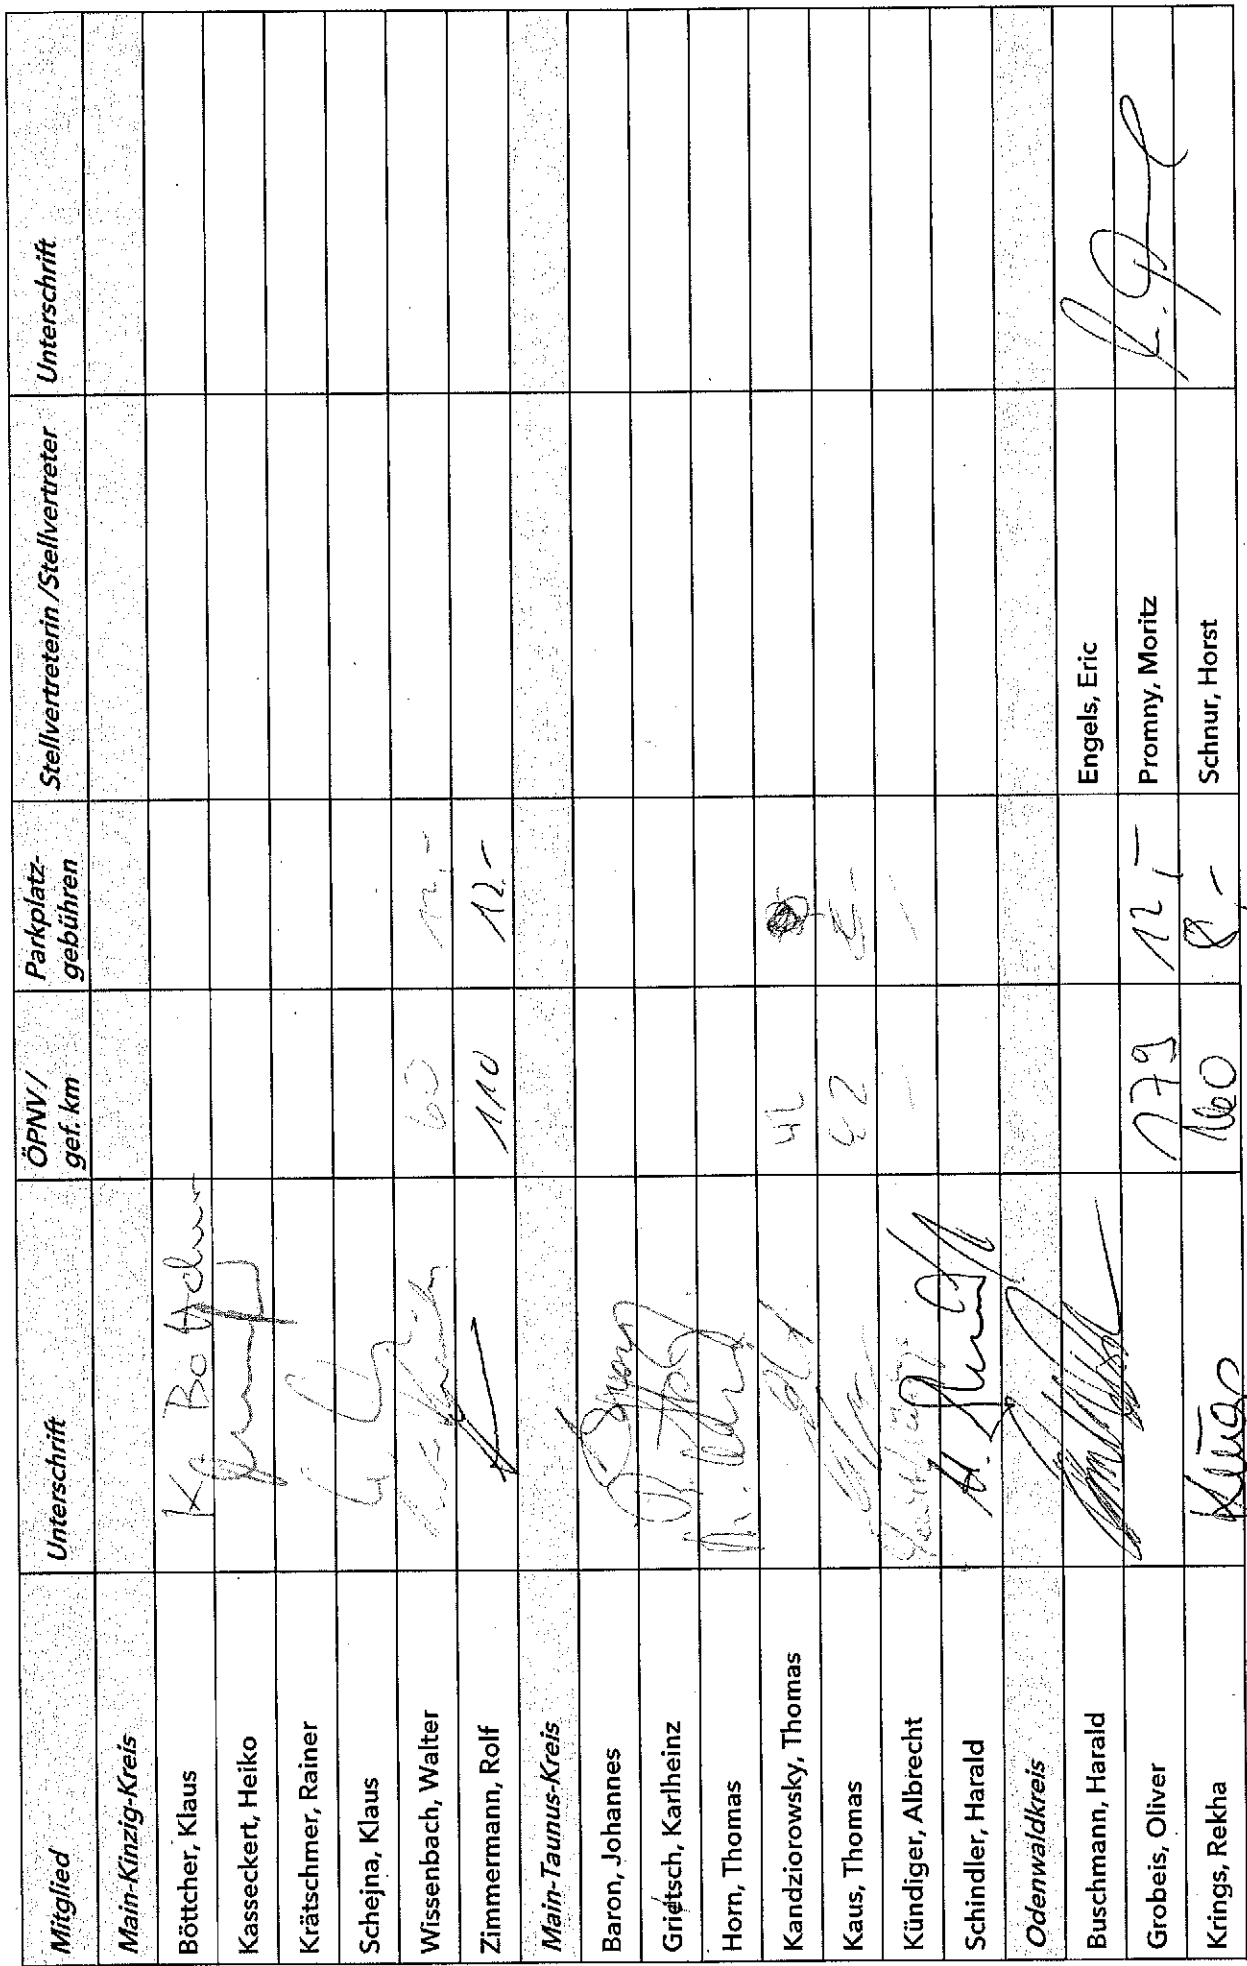 Mitglied Unterschrift ÖPNV/ gef. km Parkplatz- gebühren Stellvertreterin/Stellvertreter Unterschrift
Main-Kinzig-Kreis
Böttcher, Klaus K Böttcher
Kasseckert, Heiko
Krätschmer, Rainer
Schejna, Klaus
Wissenbach, Walter 60 12,-
Zimmermann, Rolf 110 12.-
Main-Taunus-Kreis
Baron, Johannes Baron
Grietsch, Karlheinz
Horn, Thomas
Kandziorowsky, Thomas 42
Kaus, Thomas 42
Kündiger, Albrecht - -
Schindler, Harald
Odenwaldkreis
Buschmann, Harald Engels, Eric
Grobeis, Oliver 179 12,- Promny, Moritz
Krings, Rekha Krings 160 8,- Schnur, Horst